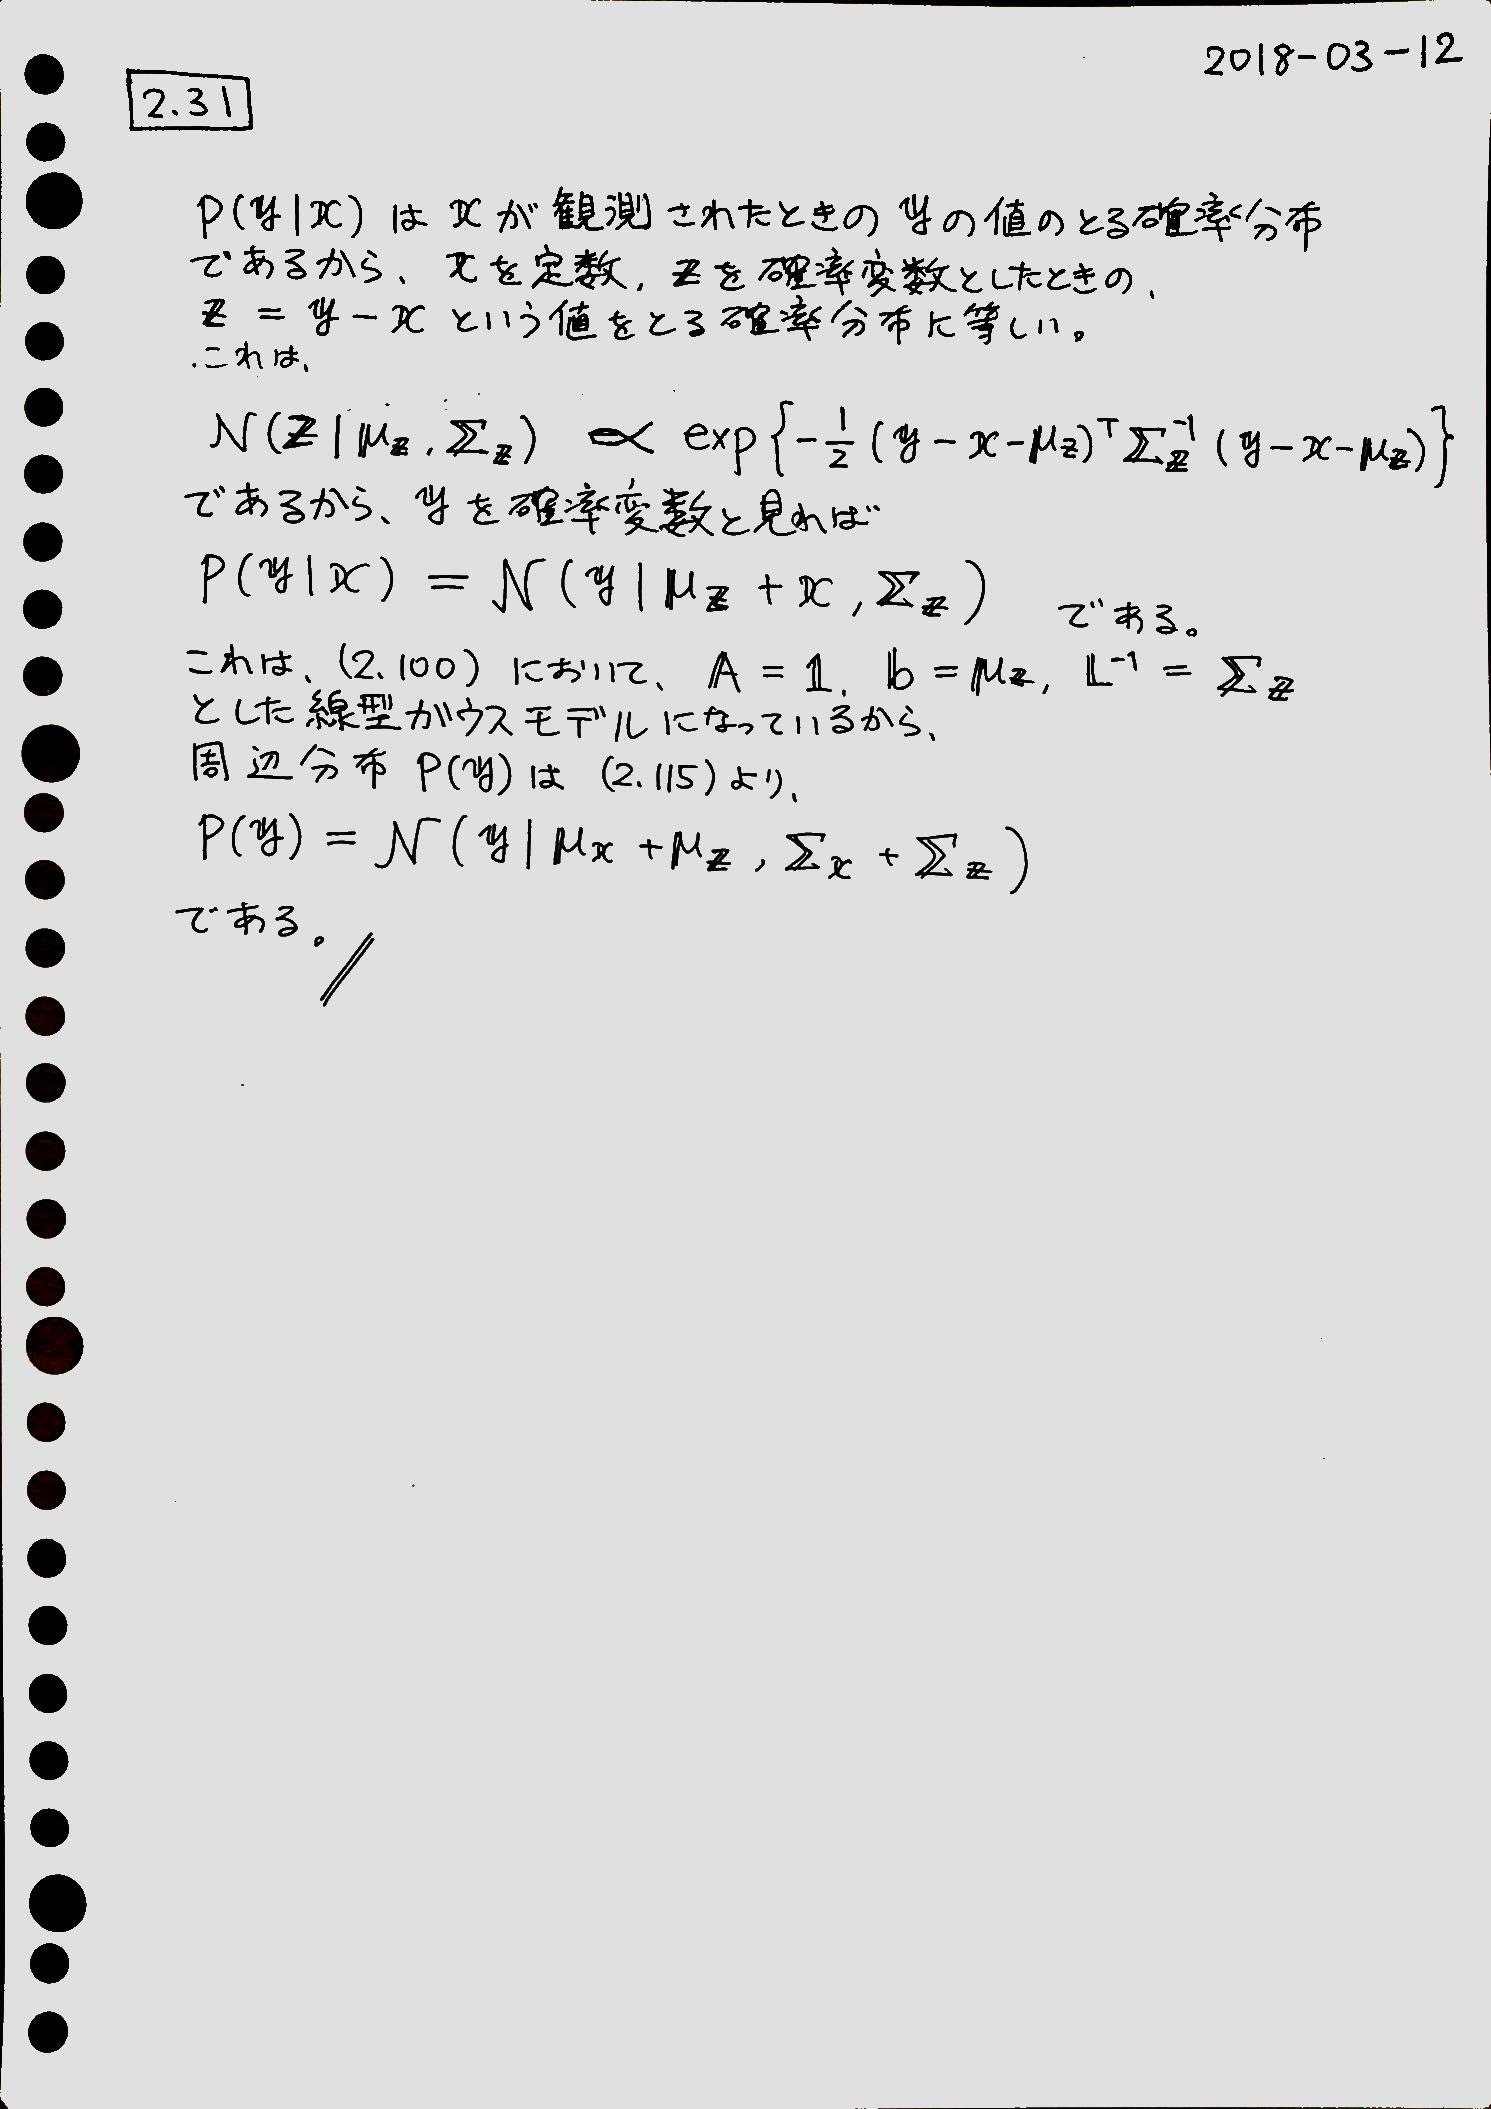 2018-03-12
2.31
P(𝕪|𝕩) は 𝕩 が 観測されたときの 𝕪 の値のとる確率分布
であるから、𝕩を定数, 𝕫を確率変数としたときの、
𝕫 = 𝕪 - 𝕩 という値をとる確率分布に等しい。
これは、
N(𝕫|μ_𝕫, Σ_𝕫) ∝ exp{-1/2 (𝕪-𝕩-μ_𝕫)^T Σ_𝕫^-1 (𝕪-𝕩-μ_𝕫)}
であるから、𝕪を確率変数と見れば
P(𝕪|𝕩) = N(𝕪|μ_𝕫 + 𝕩, Σ_𝕫) である。
これは、(2.100) において、𝔸 = 𝟙, 𝕓 = μ_𝕫, 𝕃^-1 = Σ_𝕫
とした線型ガウスモデルになっているから、
周辺分布 P(𝕪) は (2.115) より、
P(𝕪) = N(𝕪|μ_𝕩 + μ_𝕫, Σ_𝕩 + Σ_𝕫)
である。//